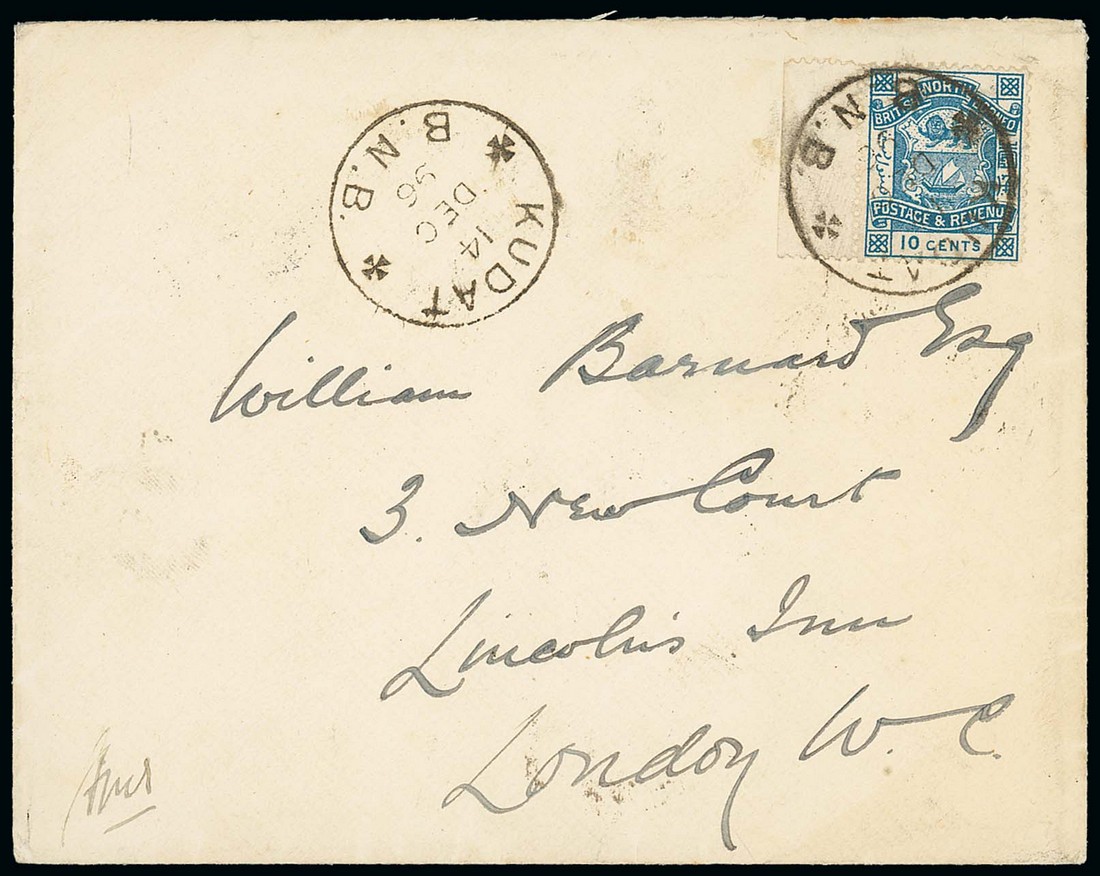 KUDAT
B.N.B.
14
DEC
96
BRITISH NORTH BORNEO
POSTAGE & REVENUE
10 CENTS
B.N.B.
William Barnard Esq
3. New Court
Lincoln's Inn
London W.C.